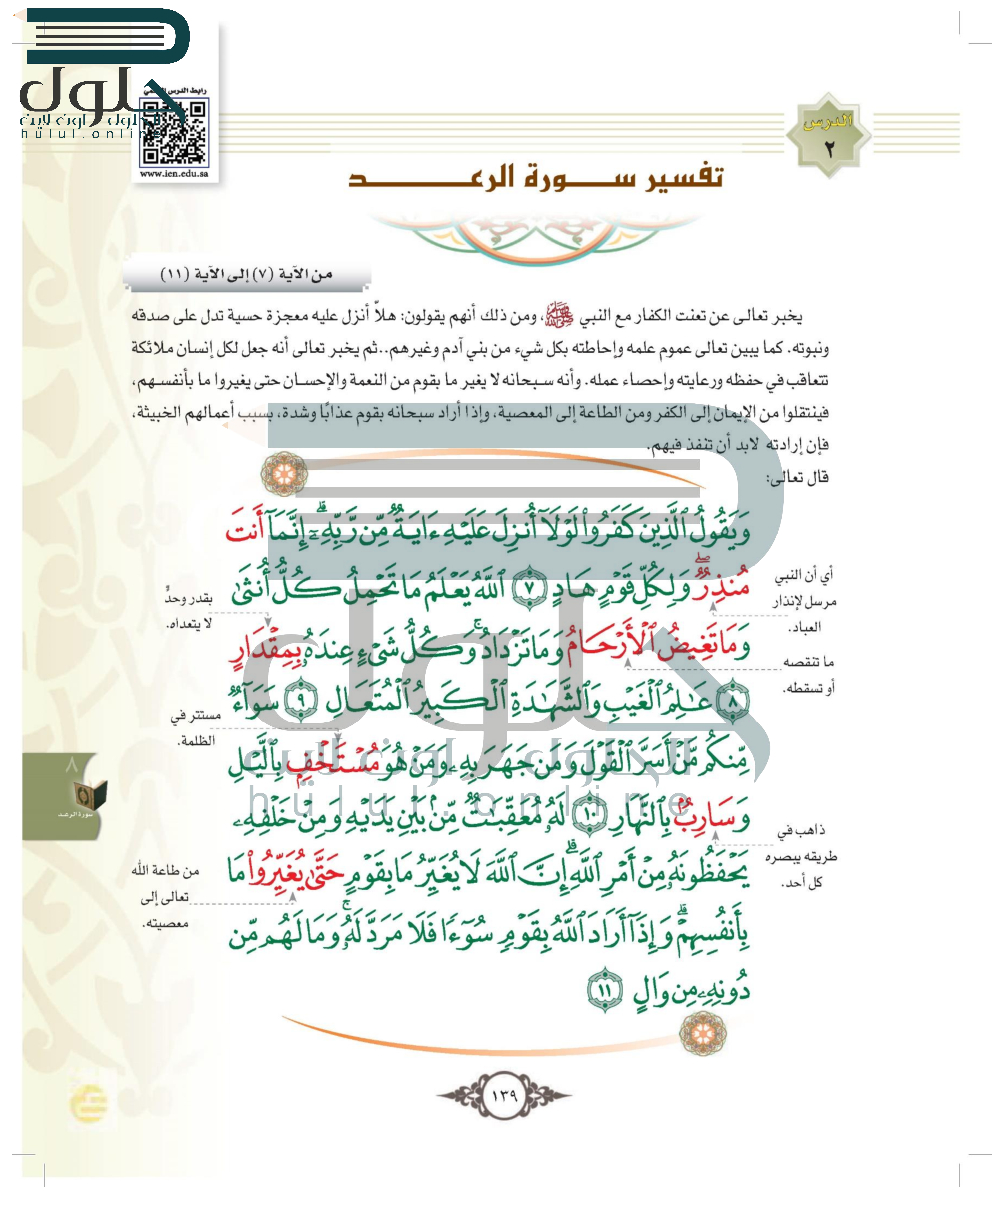 حلول
الحلول اون لاين
hulul.online
رابط الدرس الرقمي
www.ien.edu.sa
الدرس
٢
تفسير ســورة الرعــد
من الآية (٧) إلى الآية (١١)
يخبر تعالى عن تعنت الكفار مع النبي ﷺ، ومن ذلك أنهم يقولون: هلاّ أنزل عليه معجزة حسية تدل على صدقه
ونبوته. كما يبين تعالى عموم علمه وإحاطته بكل شيء من بني آدم وغيرهم..ثم يخبر تعالى أنه جعل لكل إنسان ملائكة
تتعاقب في حفظه ورعايته وإحصاء عمله. وأنه سبحانه لا يغير ما بقوم من النعمة والإحسان حتى يغيروا ما بأنفسهم،
فينتقلوا من الإيمان إلى الكفر ومن الطاعة إلى المعصية، وإذا أراد سبحانه بقوم عذابًا وشدة، بسبب أعمالهم الخبيثة،
فإن إرادته لابد أن تنفذ فيهم.
قال تعالى:
وَيَقُولُ ٱلَّذِينَ كَفَرُواْ لَوۡلَآ أُنزِلَ عَلَيۡهِ ءَايَةٞ مِّن رَّبِّهِۦٓۗ إِنَّمَآ أَنتَ
مُنذِرٞۖ وَلِكُلِّ قَوۡمٍ هَادٍ ٧ ٱللَّهُ يَعۡلَمُ مَا تَحۡمِلُ كُلُّ أُنثَىٰ
وَمَا تَغِيضُ ٱلۡأَرۡحَامُ وَمَا تَزۡدَادُۚ وَكُلُّ شَيۡءٍ عِندَهُۥ بِمِقۡدَارٍ
٨ عَٰلِمُ ٱلۡغَيۡبِ وَٱلشَّهَٰدَةِ ٱلۡكَبِيرُ ٱلۡمُتَعَالِ ٩ سَوَآءٞ
مِّنكُم مَّنۡ أَسَرَّ ٱلۡقَوۡلَ وَمَن جَهَرَ بِهِۦ وَمَنۡ هُوَ مُسۡتَخۡفِۭ بِٱلَّيۡلِ
وَسَارِبُۢ بِٱلنَّهَارِ ١٠ لَهُۥ مُعَقِّبَٰتٞ مِّنۢ بَيۡنِ يَدَيۡهِ وَمِنۡ خَلۡفِهِۦ
يَحۡفَظُونَهُۥ مِنۡ أَمۡرِ ٱللَّهِۗ إِنَّ ٱللَّهَ لَا يُغَيِّرُ مَا بِقَوۡمٍ حَتَّىٰ يُغَيِّرُواْ مَا
بِأَنفُسِهِمۡۗ وَإِذَآ أَرَادَ ٱللَّهُ بِقَوۡمٖ سُوٓءٗا فَلَا مَرَدَّ لَهُۥۚ وَمَا لَهُم مِّن
دُونِهِۦ مِن وَالٍ ١١
أي أن النبي
مرسل لإنذار
العباد.
ما تنقصه
أو تسقطه.
ذاهب في
طريقه يبصره
كل أحد.
بقدر وحدٍّ
لا يتعداه.
مستتر في
الظلمة.
من طاعة الله
تعالى إلى
معصيته.
الحلول اون لاين
hulul.online
٨
سورة الرعد
١٣٩